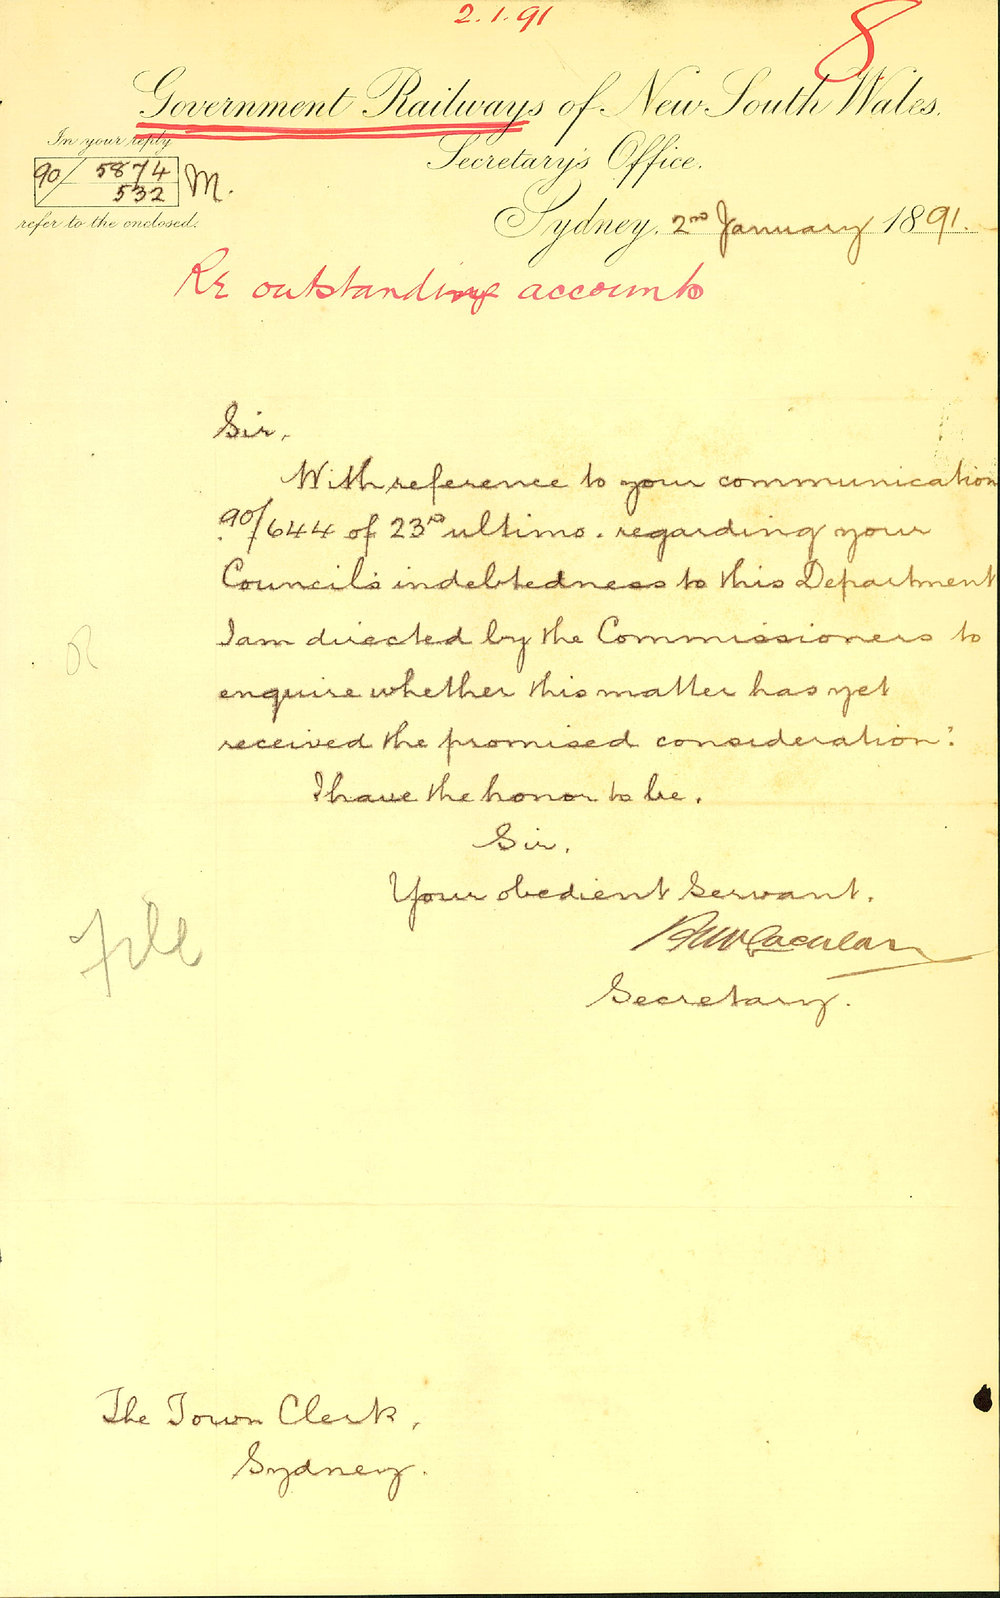 2.1.91
8
Government Railways of New South Wales.
Secretary's Office.
In your reply
90/ 5874
532 M.
refer to the enclosed.
Sydney, 2nd January 1891.
Re outstanding accounts
Sir,
With reference to your communication
90/644 of 23rd ultimo. regarding your
Council's indebtedness to this Department
I am directed by the Commissioners to
enquire whether this matter has yet
received the promised consideration?
I have the honor to be,
Sir,
Your obedient Servant,
Secretary.
File
The Town Clerk,
Sydney.